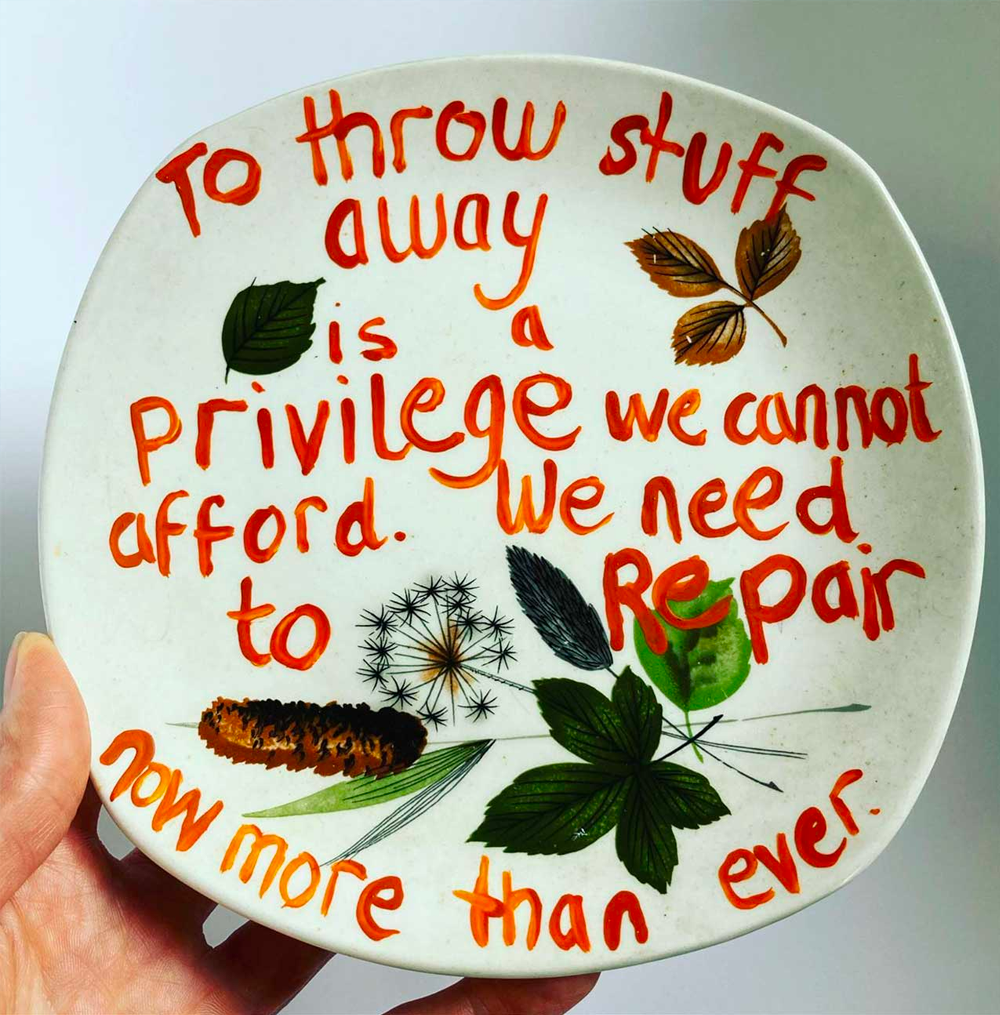 To throw stuff
away
is a
privilege we cannot
afford. We need
to Repair
now more than ever.